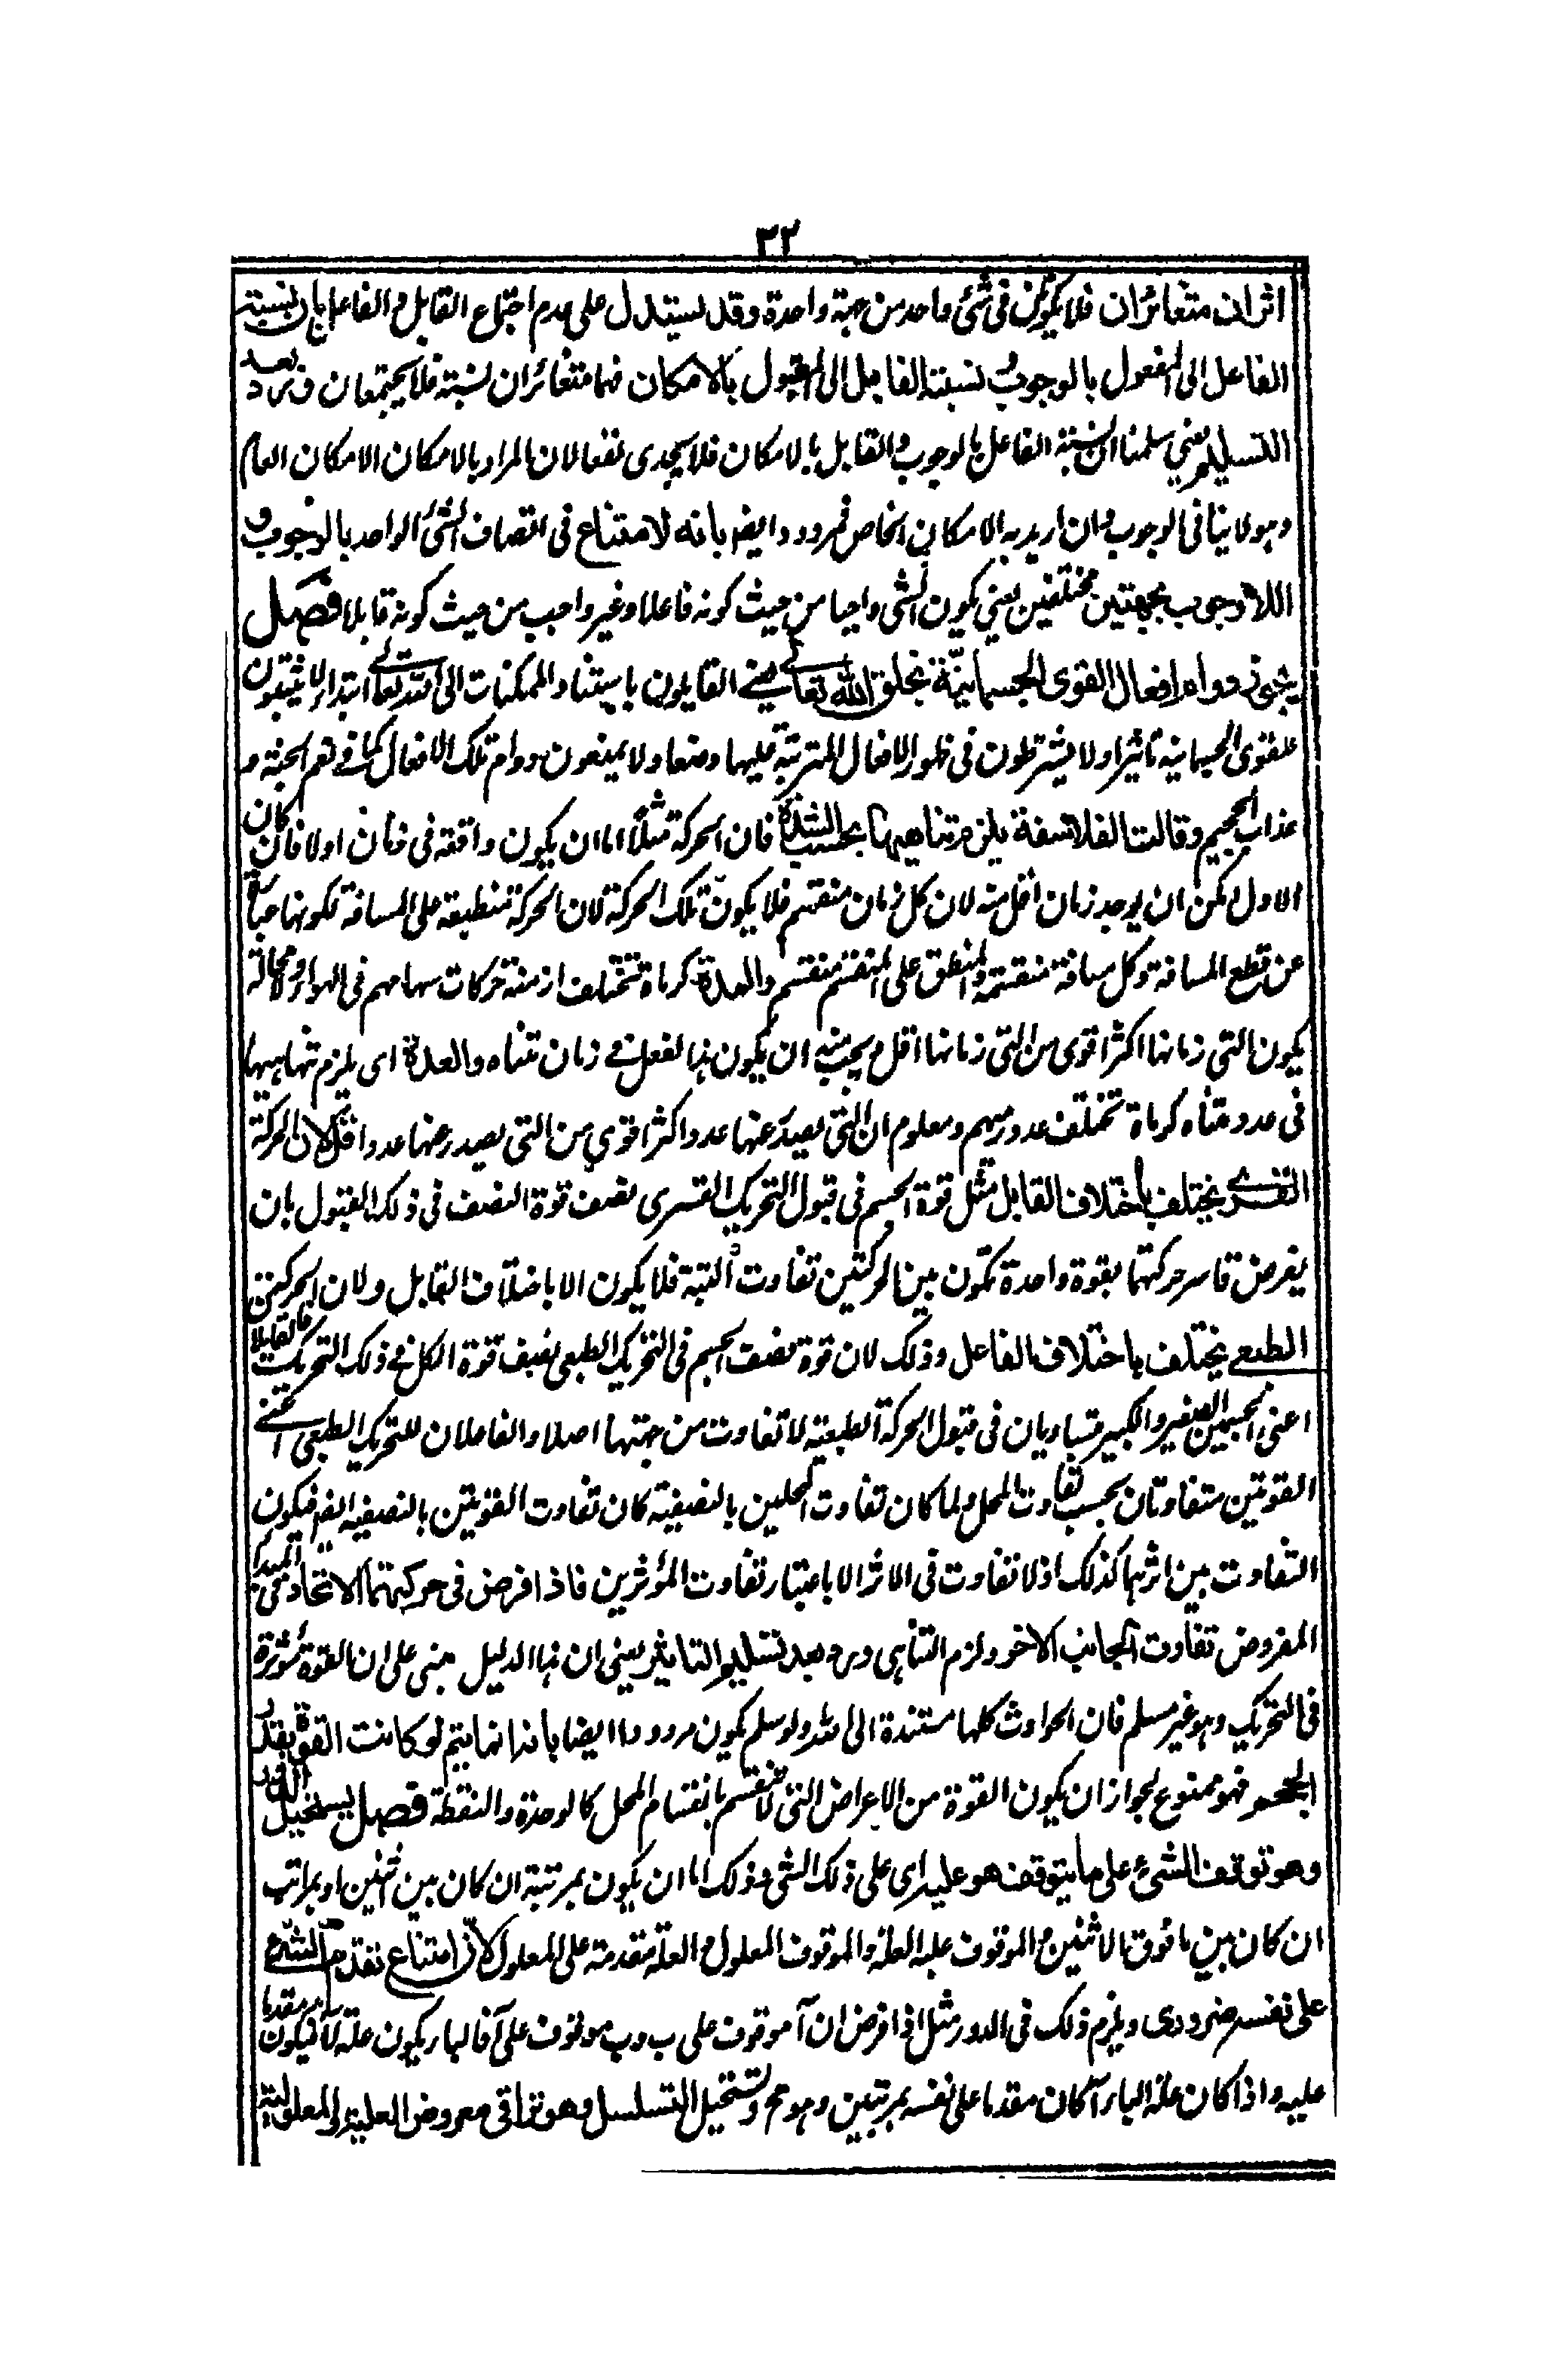 ٣٢
اثران متغائران فلا يكونان فى شئ واحد من جهة واحدة وقد يستدل على عدم اجتماع القابل و الفاعل بان نسبته
الفاعل الى المفعول بالوجوب و نسبته القابل الى المقبول بالامكان فهما متغائران نسبته فلا يجتمعان و يرد بعد
التسليم يعنى سلمنا ان نسبته الفاعل بالوجوب و القابل بالامكان فلا يجدى نفعا لان المراد بالامكان الامكان العام
و هو لا ينافى الوجوب و ان اريد به الامكان الخاص فمردود ايضا بانه لا امتناع فى اتصاف الشئ الواحد بالوجوب و
اللاوجوب بجهتين مختلفتين يعنى يكون الشئ واجبا من حيث كونه فاعلا و غير واجب من حيث كونه قابلا فصل
يجوز دوام افعال القوى الجسمانية بخلق الله تعالى يعنى القايلون باستناد الممكنات الى الله تعالى ابتداء لا يثبتون
للقوى الجسمانية تاثيرا و لا يشترطون فى ظهور الافعال المترتبة عليها وضعا و لا يمنعون دوام تلك الافعال كما فى نعم الجنة و
عذاب الجحيم و قالت الفلاسفة يلزم تناهيها بحسب الشدة فان الحركة مثلا اما ان يكون واقعة فى زمان اولا فان كان
الاول امكن ان يوجد زمان اقل منه لان كل زمان منقسم فلا يكون تلك الحركة لان الحركة منطبقة على المسافة لكونها عبارة
عن قطع المسافة و كل مسافة منقسمة و المنطبق على المنقسم منقسم و المدة كرماة تختلف ازمنة حركات سهامهم فى الهواء و لا محالة
يكون التى زمانها اكثر اقوى من التى زمانها اقل و يجب منه ان يكون هذا لفعل فى زمان متناه و العدة اى يلزم تناهيها
فى عدد متناه كرماة تختلف عدد رميهم و معلوم ان التى يصدر عنها عدد اكثر اقوى من التى يصدر عنها عدد اقل لان الحركة
القسرى يختلف باختلاف القابل مثل قوة الجسم فى قبول التحريك القسرى نصف قوة النصف فى ذلك القبول بان
يفرض قاسر حركتهما بقوة واحدة تكون بين الحركتين تفاوت البتة فلا يكون الا باختلاف القابل و لان الحركتين
الطبعى يختلف باختلاف الفاعل و ذلك لان قوة نصف الجسم فى التحريك الطبعى نصف قوة الكل فى ذلك التحريك فالقابلا
اعنى الجسمين الصغير و الكبير متساويان فى قبول الحركة الطبعية لا تفاوت من جهتها اصلا و الفاعلان للتحريك الطبعى اعنى
القوتين متفاوتان بحسب تفاوت المحل و لما كان تفاوت المحلين بالنصفية كان تفاوت القوتين بالنصفية ايضا فيكون
التفاوت بين اثريهما كذلك اذ لا تفاوت فى الاثر الا باعتبار تفاوت المؤثرين فاذا فرض فى حركتهما الاتحاد فى المبدأ
المفروض تفاوت الجانب الاخر و لزم التناهى و رد بعد تسليم التاثير يعنى ان هذا الدليل مبنى على ان القوة مؤثرة
فى التحريك و هو غير مسلم فان الحوادث كلها مستندة الى الله و لو سلم يكون مردودا ايضا بانه انما يتم لو كانت القوة بقدر
الجسم فهو ممنوع لجواز ان يكون القوة من الاعراض التى لا تنقسم بانقسام المحل كالوحدة و النقطة فصل يستحيل الدور
وهو توقف الشئ على ما يتوقف هو عليه اى على ذلك الشئ و ذلك اما ان يكون بمرتبة ان كان بين اثنين او بمراتب
ان كان بين ما فوق الاثنين و الموقوف عليه العلة و الموقوف المعلول و العلة متقدمة على المعلول لان امتناع تقدم الشئ
على نفسه ضرورى و يلزم ذلك فى الدور مثل اذا فرض ان آ موقوف على ب و ب موقوف على آ فالباء يكون علة لآ فيكون مقدما
عليه و اذا كان علة الباء آ كان مقدما على نفسه بمرتبتين و هو مح و يستحيل التسلسل وهو تراقى معروض العلية و المعلولية